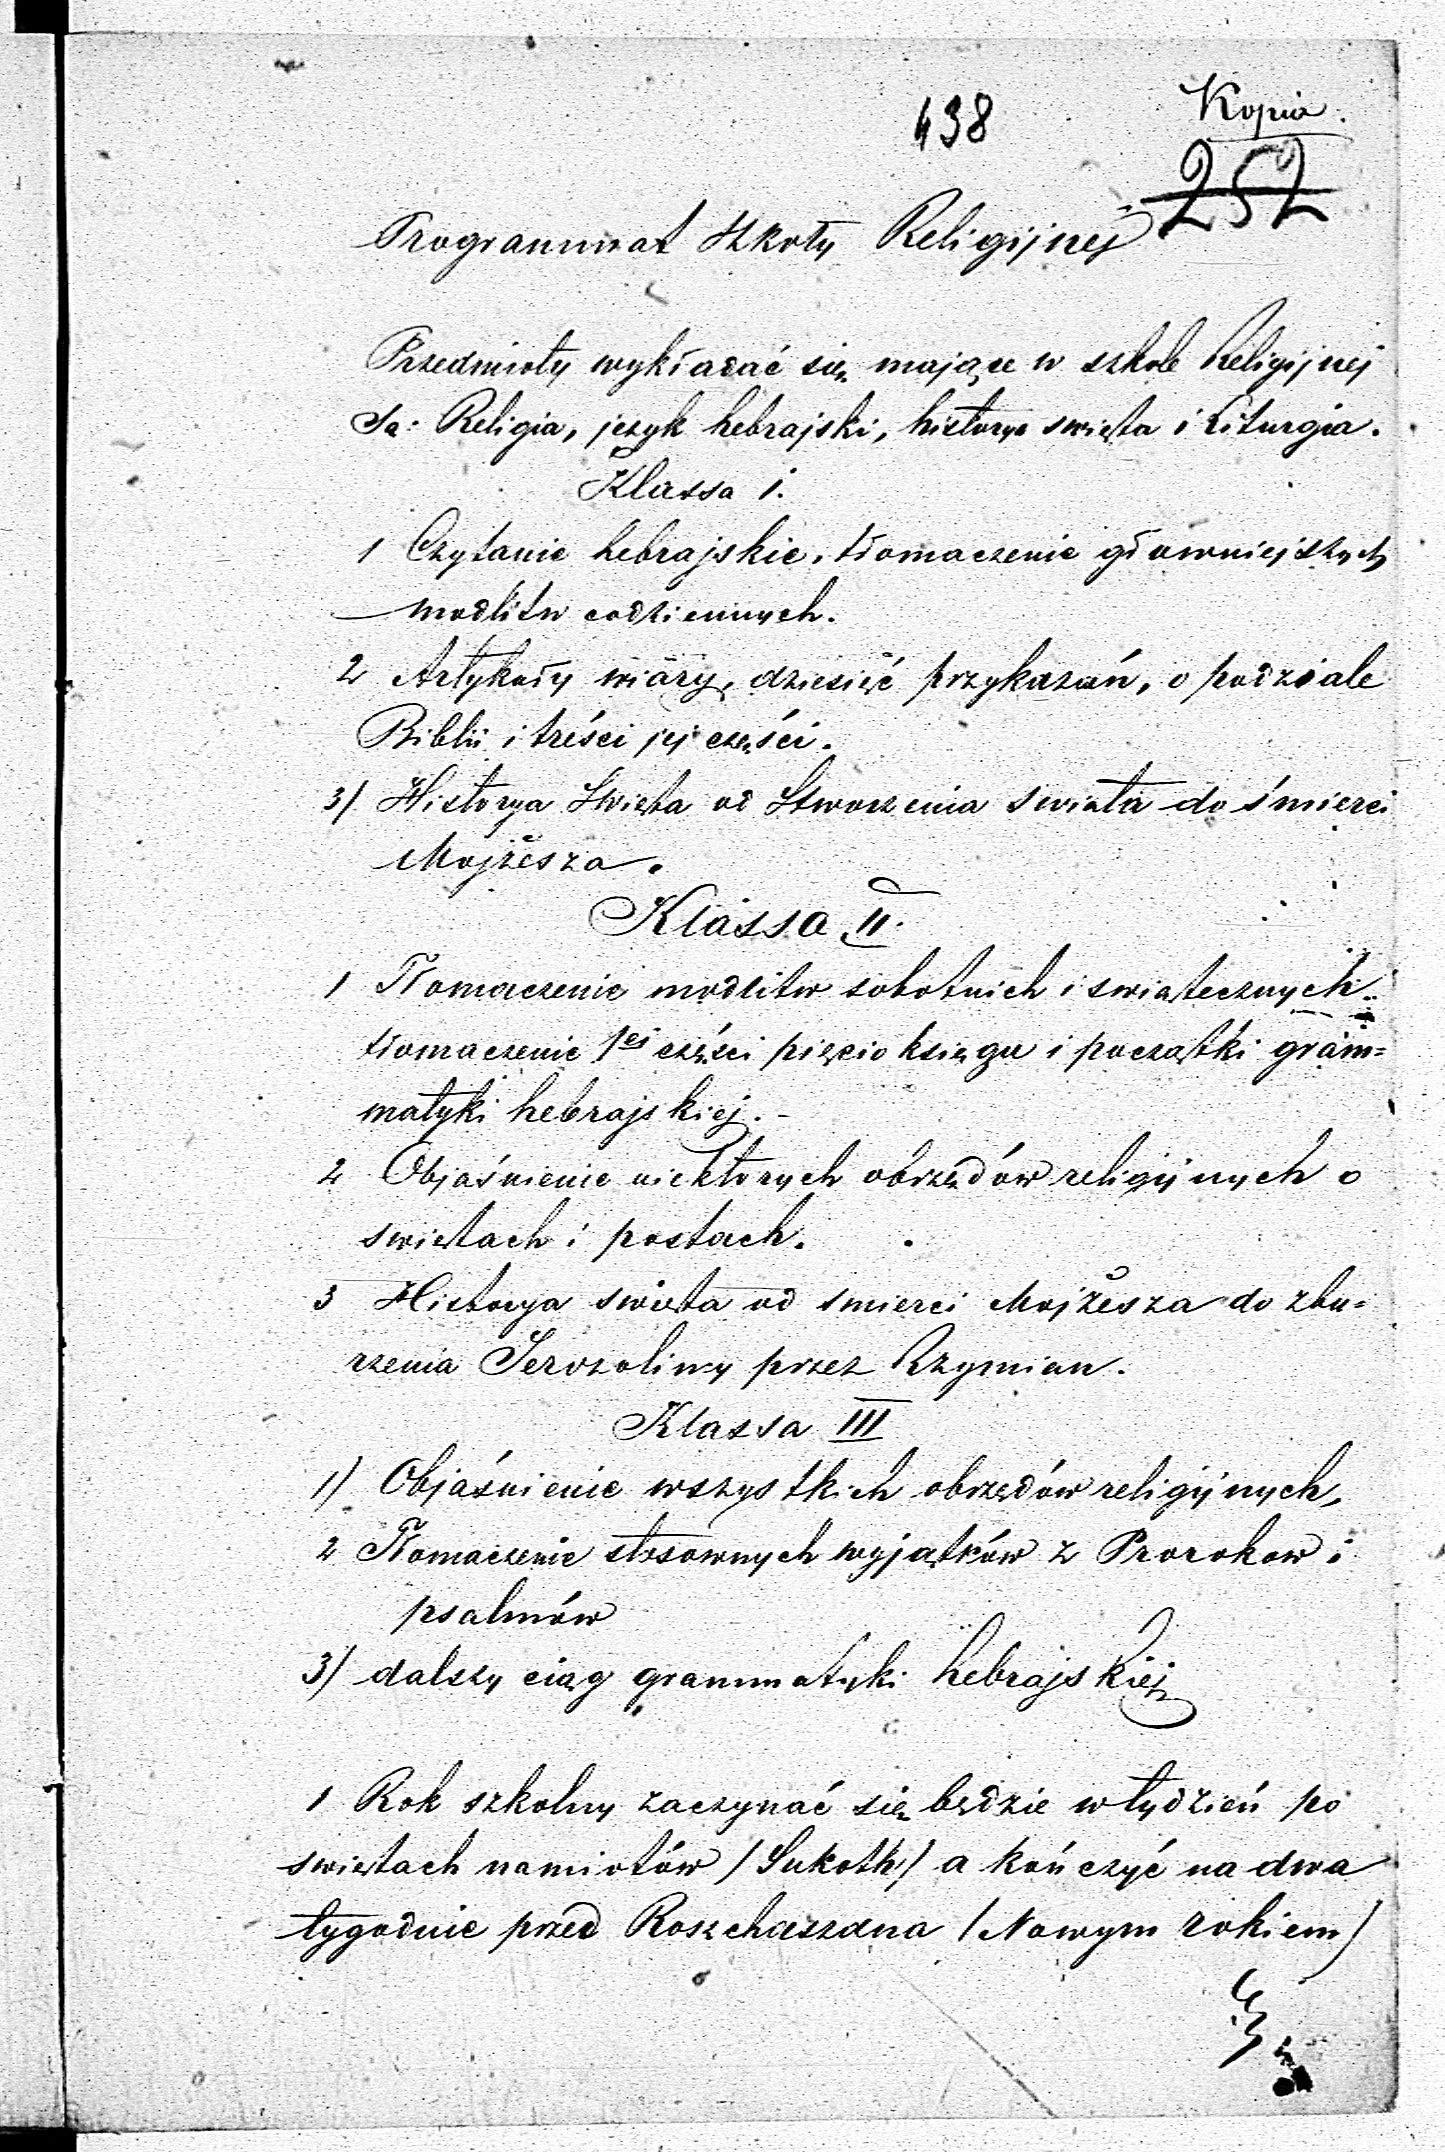 438
Kopia.
252
Programmat Szkoły Religijnej
Przedmioty wykładać się mające w szkole Religijnej
Są: Religia, język hebrajski, historya swięta i Liturgia.
Klassa I.
1 Czytanie hebrajskie, tłomaczenie główniejszych
modlitw codziennych.
2 Artykuły wiary, dziesięć przykazań, o podziale
Biblii i treści jej części.
3) Historya Swięta od Stworzenia swiata do śmierci
Mojżesza.
Klassa II.
1 Tłomaczenie modlitw sobotnich i swiątecznych
tłomaczenie 1ej części pięcioksięgu i początki gram=
matyki hebrajskiej. -
2 Objaśnienie niektorych obrzędów religijnych o
swiętach i postach.
3 Historya swięta od smierci Mojżesza do zbu=
rzenia Jerozolimy przez Rzymian.
Klassa III
1) Objaśnienie wszystkich obrzędów religijnych,
2 Tłomaczenie stosownych wyjątków z Prorokow i
psalmów
3) dalszy ciąg grammatyki hebrajskiej
1 Rok szkolny zaczynać się będzie w tydzień po
swiętach namiotów / Sukoth / a kończyć na dwa
tygodnie przed Roszchaszana / Nowym rokiem /